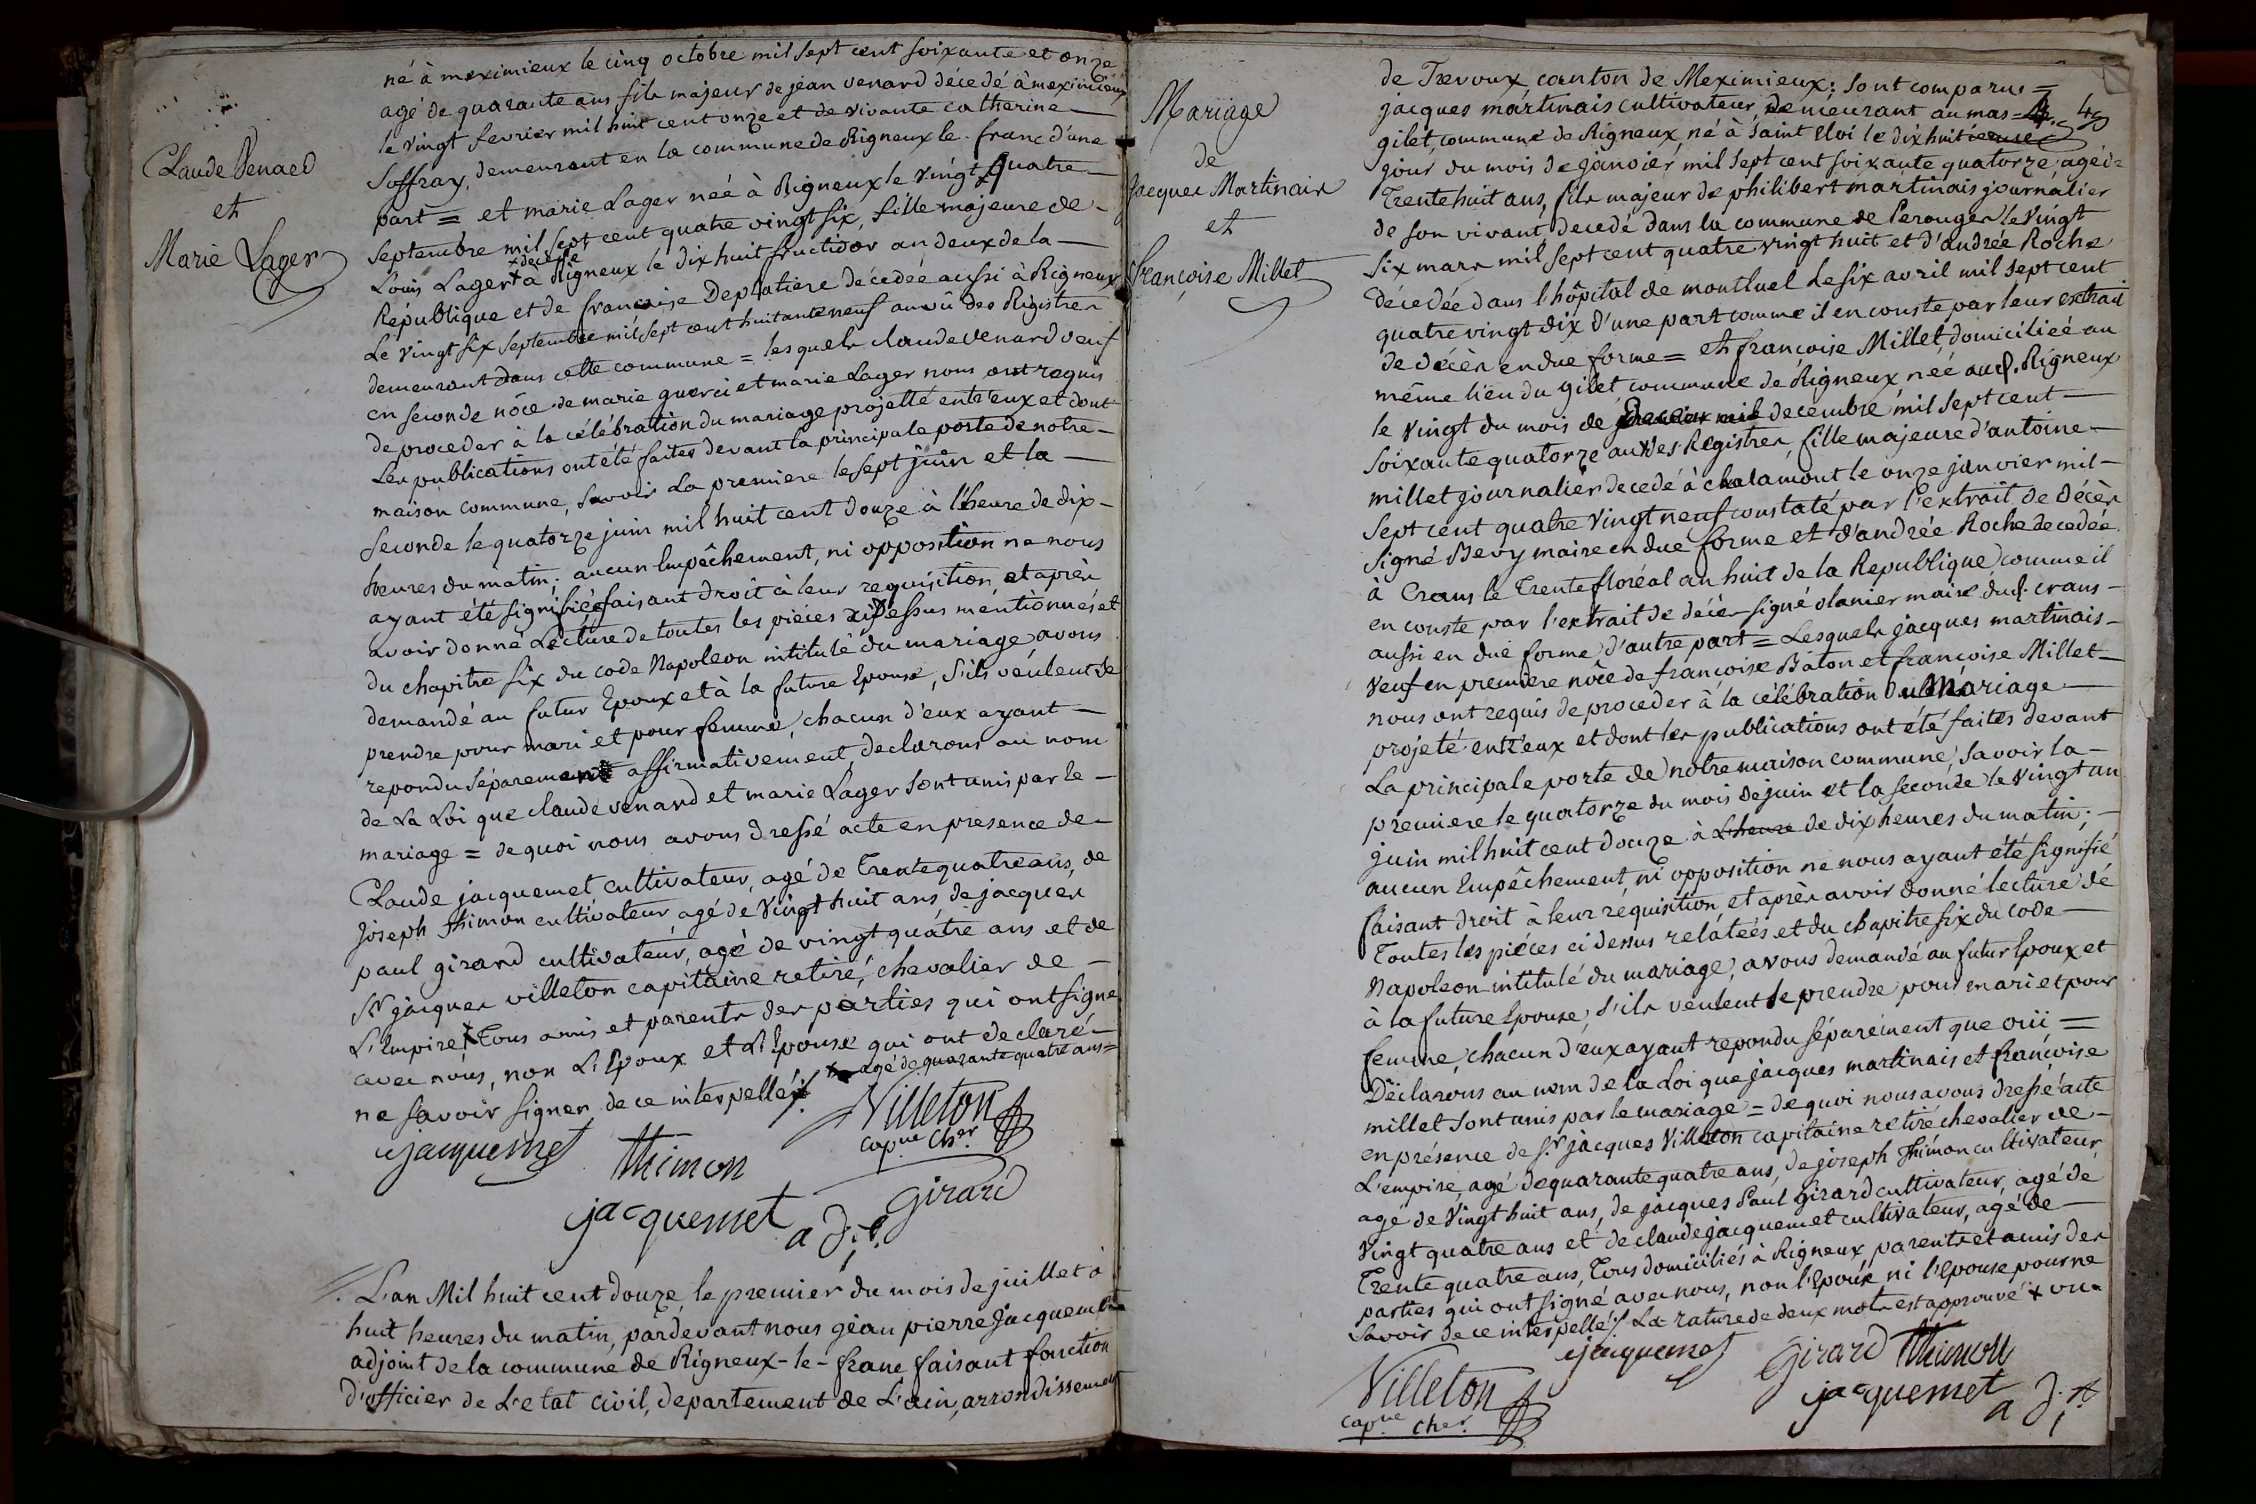 Claude Venard
et
Marie Lager
né à meximieux le cinq octobre mil sept cent soixante et onze
agé de quarante ans fils majeur de jean venard décedé à meximieux
le vingt fevrier mil huit cent onze et de vivante catherine
Soffray, demeurant en la commune de Rigneux le franc d'une
part = et marie Lager née à Rigneux le vingt quatre
septembre mil sept cent quatre vingt six, fille majeure de
x décédé
Louis Lager x à Rigneux le dix huit fructidor an deux de la
République et de françoise Deplatiere décedée aussi à Rigneux
Le vingt six septembre mil sept cent huitante neuf au vû des Registres
demeurant dans cette commune = lesquels claude venard veuf
en seconde nôce de marie guerci et marie Lager nous ont requis
de proceder à la célébration du mariage projetté entr'eux et dont
Les publications ont été faites devant la principale porte de notre
maison commune, savoir La premiere le sept juin et la
seconde le quatorze juin mil huit cent douze à l'heure de dix
heures du matin; aucun Empêchement, ni opposition ne nous
ayant été signifiée faisant droit à leur requisition et après
avoir donné Lecture de toutes les pièces ci Dessus mentionnés et
du chapitre six du code Napoleon intitulé du mariage avons
demandé au futur Epoux et à la future Epouse, s'ils veulent se
prendre pour mari et pour femme, chacun d'eux ayant
repondu séparement affirmativement declarons au nom
de La Loi que claude venard et marie Lager sont unis par le
mariage = de quoi nous avons dressé acte en presence de
Claude jacquemet cultivateur, agé de trente quatre ans, de
joseph Thimon cultivateur agé de vingt huit ans, de jacques
paul girard cultivateur, agé de vingt quatre ans et de
Sr jacques villeton capitaine retiré, chevalier de
L'Empire x Tous amis et parents des parties qui ont signé
avec nous, non L'Epoux et L'Epouse qui ont declaré
x agé de quarante quatre ans =
ne savoir signer de ce interpellé ./.
Villeton
capne Cher
jacquemet
Thimon
girard
jacquemet
a dj.t
L'an Mil huit cent douze, le premier du mois de juillet à
huit heures du matin, pardevant nous jean pierre Jacquemet
adjoint de la commune de Rigneux-le-franc faisant fonction
d'officier de L'etat civil, departement de L'ain, arrondissement
Mariage
de
Jacques Martinais
et
françoise Millet
49
de Trevoux canton de Meximieux: sont comparus =
jacques martinais cultivateur, demeurant au mas
gilet, commune de Rigneux, né à Saint Eloi le dix huitieme
jour du mois de janvier mil sept cent soixante quatorze, agé de
Trente huit ans, fils majeur de philibert martinais journalier
de son vivant décedé dans la commune de Perouges le vingt
six mars mil sept cent quatre vingt huit et d'andrée Roche
décedée dans l'hôpital de montluel le six avril mil sept cent
quatre vingt dix d'une part comme il en conste par leur extrait
de décès en due forme = et françoise Millet, domiciliée au
même lieu du gilet, commune de Rigneux, née aud. Rigneux
le vingt du mois de decembre mil sept cent
soixante quatorze au x des Registres, fille majeure d'antoine
millet journalier decedé à chalamont le onze janvier mil
sept cent quatre vingt neuf constaté par l'extrait de décès
signé Bevy maire en due forme et d'andrée Roche decedée
à Crans le Trente floréal an huit de la Republique comme il
en conste par l'extrait de décès signé olanier maire dud. crans
aussi en due forme d'autre part = Lesquels jacques martinais
veuf en premiere nôce de françoise Baton et françoise Millet
nous ont requis de proceder à la célébration du Mariage
projeté entr'eux et dont les publications ont été faites devant
La principale porte de notre maison commune, savoir la
premiere le quatorze du mois de juin et la seconde le vingt un
juin mil huit cent douze à L'heure de dix heures du matin;
aucun Empêchement, ni opposition ne nous ayant été signifié
faisant droit à leur requisition et après avoir donné lecture de
Toutes les pièces ci dessus relatées et du chapitre six du code
Napoleon intitulé du mariage, avons demandé au futur Epoux et
à la future Epouse, s'ils veulent se prendre pour mari et pour
femme, chacun d'eux ayant repondu séparément que oui =
Déclarons au nom de la Loi que jacques martinais et françoise
millet sont unis par le mariage = de quoi nous avons dressé acte
en présence de Sr jacques Villeton capitaine retiré chevalier de
L'empire, agé de quarante quatre ans, de joseph Thimon cultivateur
agé de vingt huit ans, de jacques Paul Girard cultivateur, agé de
vingt quatre ans et de claude jacquemet cultivateur, agé de
Trente quatre ans, Tous domiciliés à Rigneux parents et amis des
parties qui ont signé avec nous, non l'Epoux ni l'Epouse pour ne
savoir de ce interpellé ./. La rature de deux mots est approuvé x vu
jacquemet
Girard Thimon
Villeton
capne cher
jacquemet
a dj.t